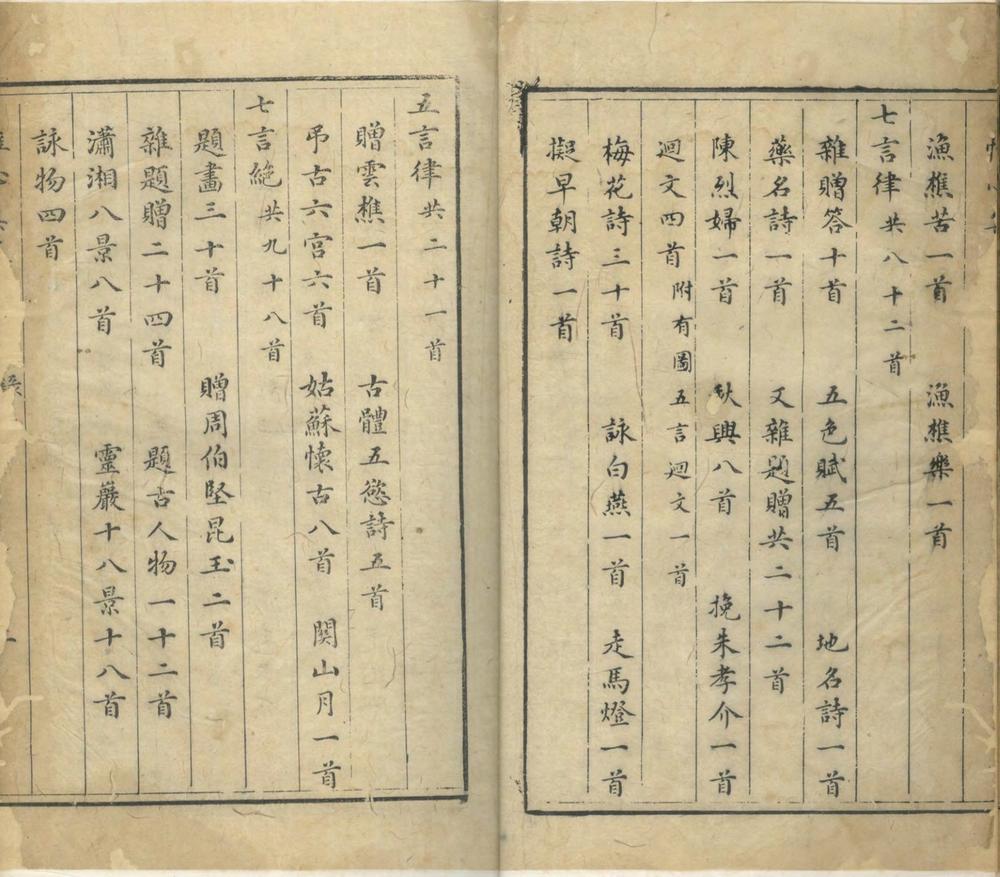 漁樵苦一首 漁樵樂一首
七言律共八十二首
雜贈答十首 五色賦五首 地名詩一首
藥名詩一首 又雜題贈共二十二首
陳烈婦一首 秋興八首 挽朱孝介一首
迴文四首附有圖五言迴文一首
梅花詩三十首 詠白燕一首 走馬燈一首
擬早朝詩一首
五言律共二十一首
贈雲樵一首 古體五慾詩五首
弔古六宫六首 姑蘇懷古八首 関山月一首
七言絕共九十八首
題畫三十首 贈周伯堅昆玉二首
雜題贈二十四首 題古人物一十二首
瀟湘八景八首 靈巖十八景十八首
詠物四首